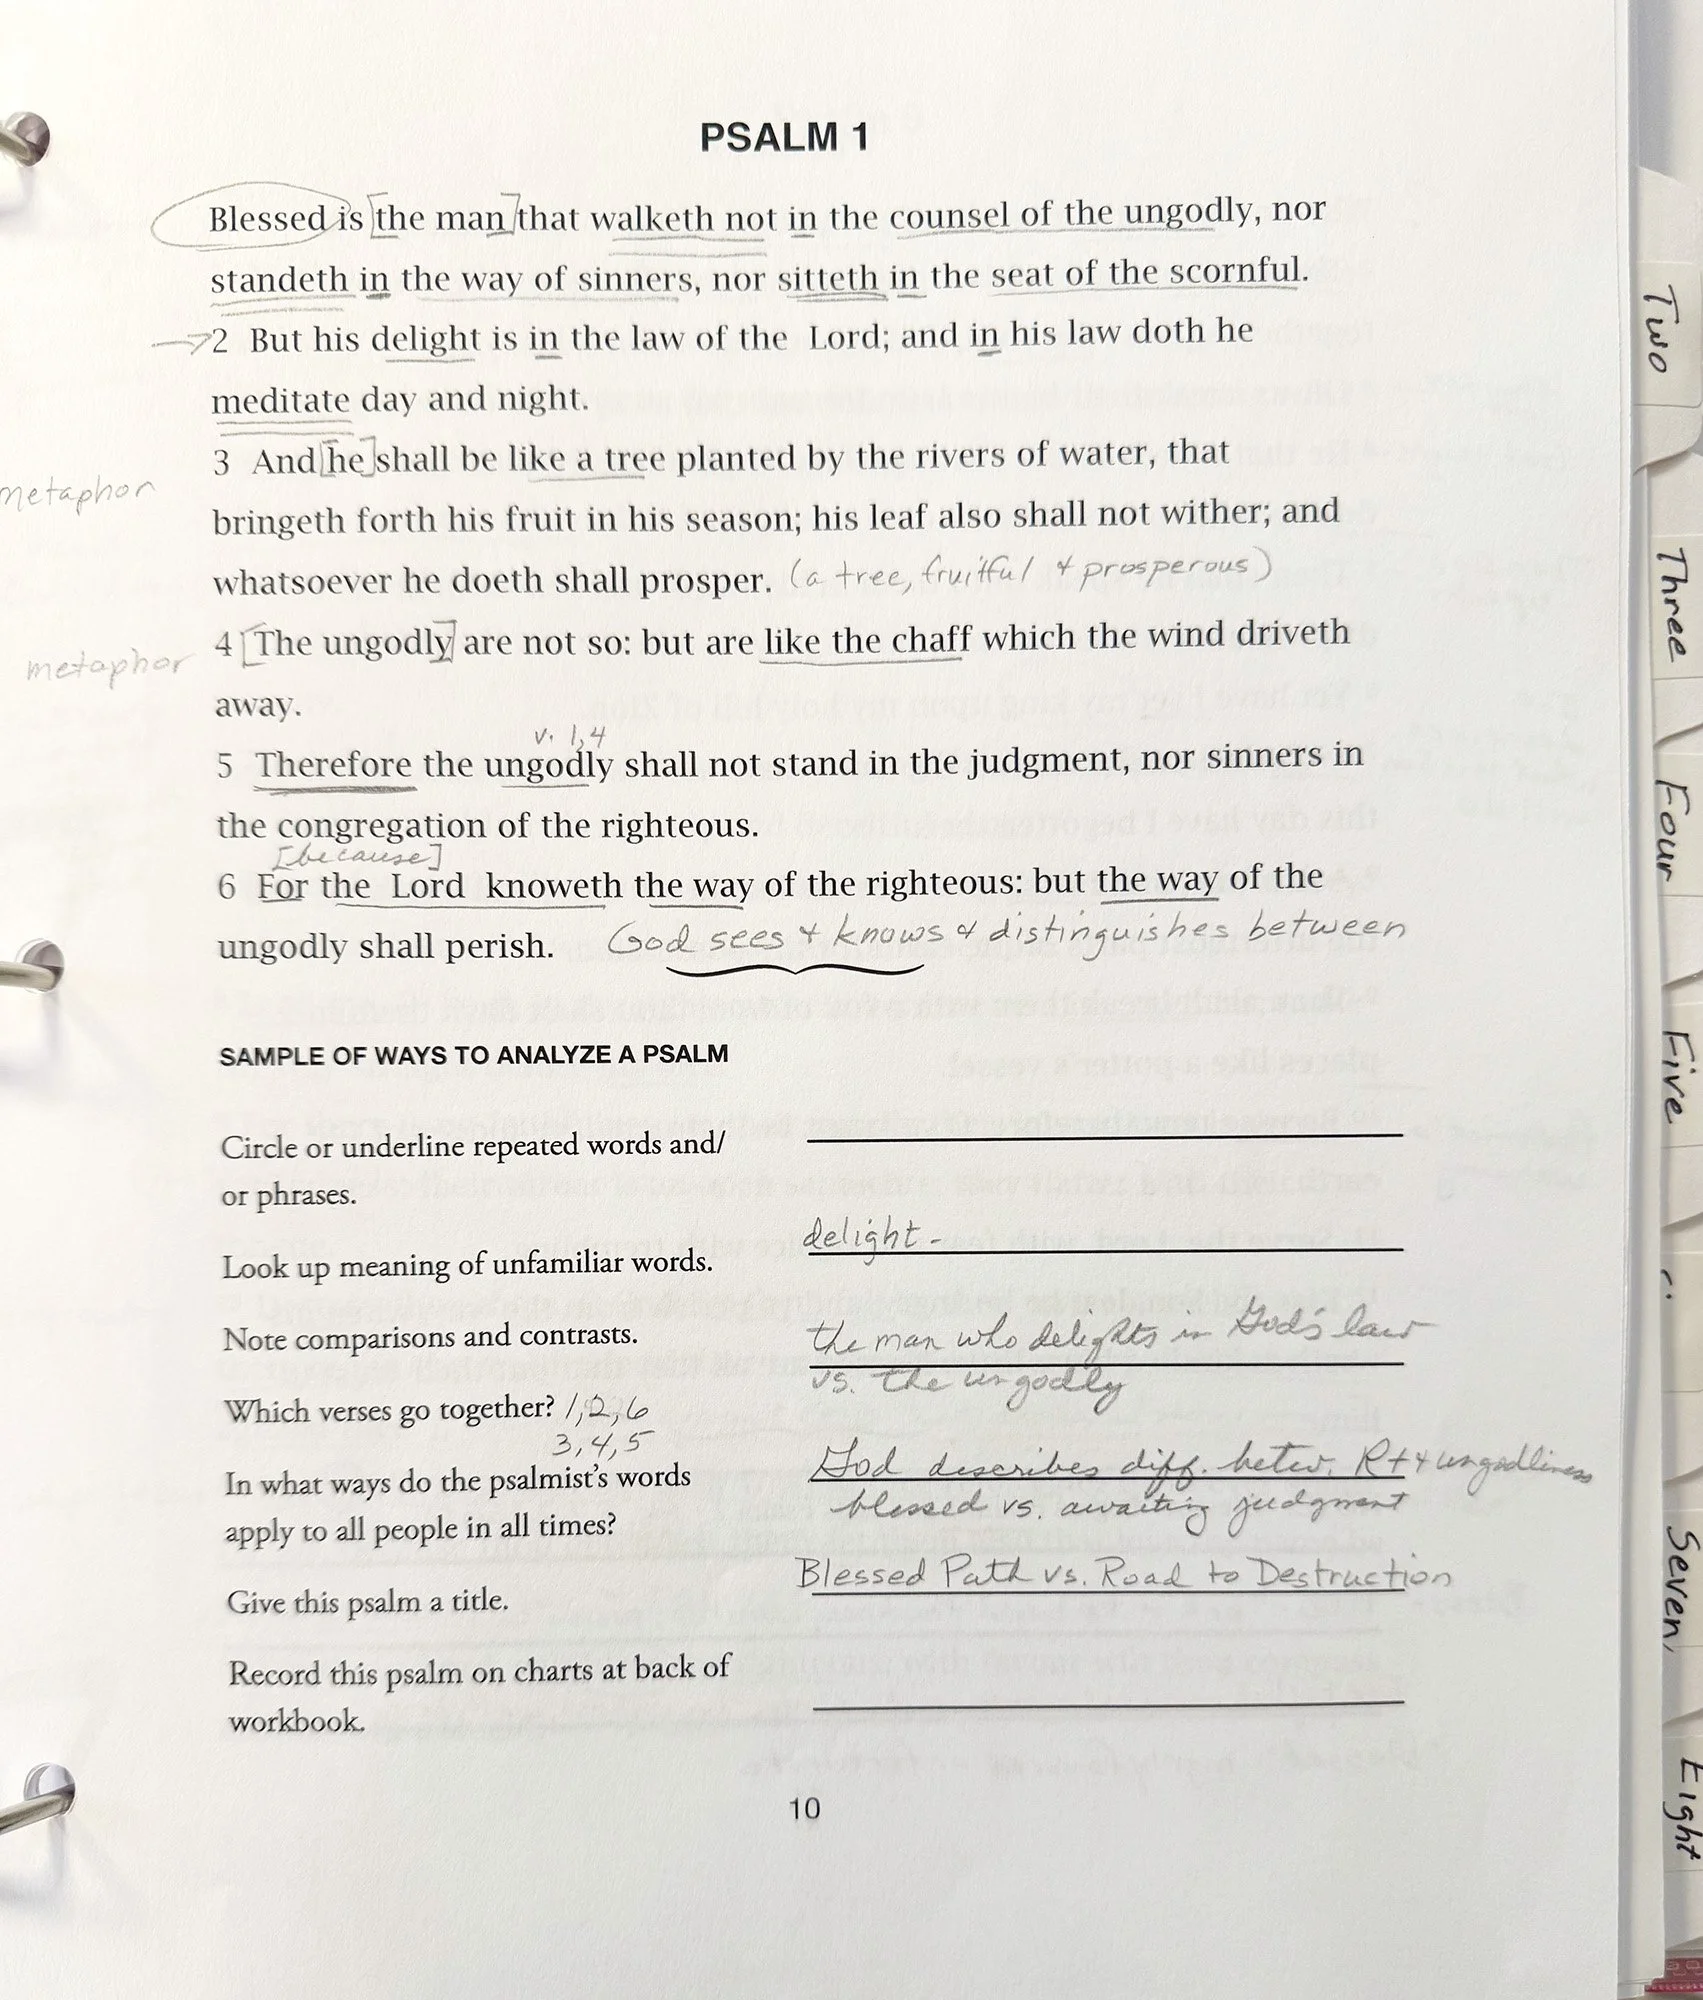 PSALM 1
Blessed is [the man] that walketh not in the counsel of the ungodly, nor
standeth in the way of sinners, nor sitteth in the seat of the scornful.
→2 But his delight is in the law of the Lord; and in his law doth he
meditate day and night.
3 And [he] shall be like a tree planted by the rivers of water, that
metaphor
bringeth forth his fruit in his season; his leaf also shall not wither; and
whatsoever he doeth shall prosper. (a tree, fruitful + prosperous)
4 [The ungodly] are not so: but are like the chaff which the wind driveth
metaphor
away.
v. 1,4
5 Therefore the ungodly shall not stand in the judgment, nor sinners in
the congregation of the righteous.
[because]
6 For the Lord knoweth the way of the righteous: but the way of the
ungodly shall perish. God sees + knows + distinguishes between
SAMPLE OF WAYS TO ANALYZE A PSALM
Circle or underline repeated words and/
or phrases.
Look up meaning of unfamiliar words. delight -
Note comparisons and contrasts. the man who delights in God's law
vs. the ungodly
Which verses go together? 1,2,6
3,4,5
In what ways do the psalmist's words God describes diff. betw. Rt + ungodliness
apply to all people in all times? blessed vs. awaiting judgment
Give this psalm a title. Blessed Path vs. Road to Destruction
Record this psalm on charts at back of
workbook.
10
Two
Three
Four
Five
Seven
Eight